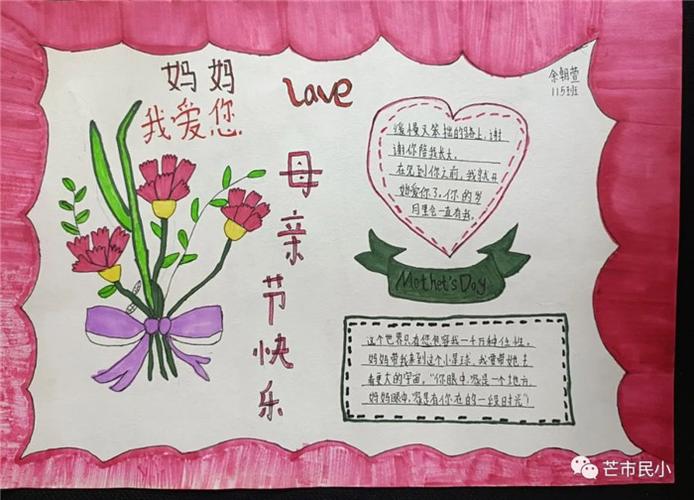 妈妈
我爱您
Love
余朝萱
115班
母亲节快乐
缓慢又笨拙的路上，谢
谢你陪我长大。
在见到你之前，我就开
始爱你了。你的岁
月里会一直有我。
Mothet's Day
这个世界只有您包容我一千万种任性。
妈妈带我来到这个小星球，我要带她去
看更大的宇宙。“你眼中，家是一个地方
妈妈眼中，家是有你在的一段时光”）
芒市民小